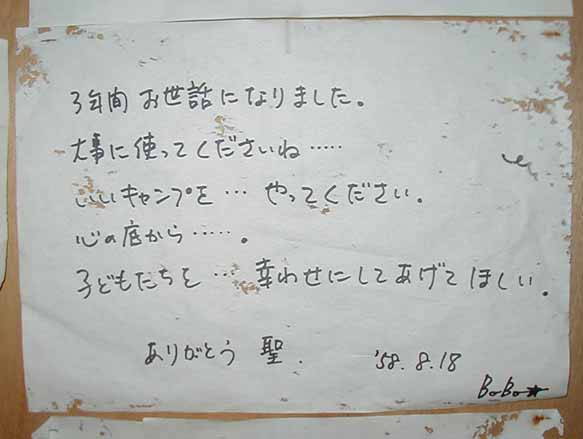 3年間 お世話になりました。
大事に使ってくださいね‥‥‥
いいキャンプを … やってください。
心の底から‥‥‥。
子どもたちを … 幸わせにしてあげてほしい。
ありがとう 聖.
'58.8.18
BoBo★